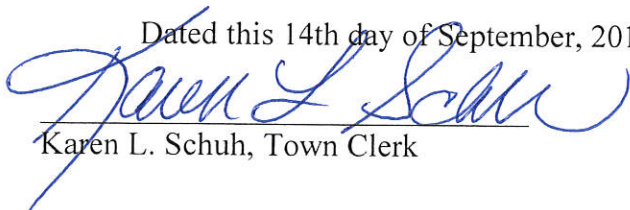 Dated this 14th day of September, 201
Karen L Schuh
Karen L. Schuh, Town Clerk